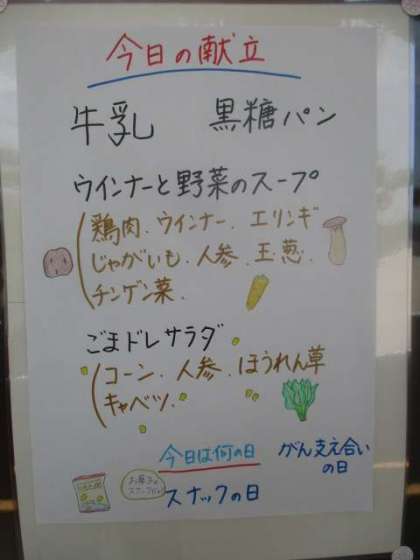 今日の献立
牛乳　黒糖パン
ウインナーと野菜のスープ
鶏肉．ウインナー．エリンギ
じゃがいも．人参．玉葱．
チンゲン菜．
ごまドレサラダ
コーン．人参．ほうれん草
キャベツ．
今日は何の日
がん支え合い
の日
スナックの日